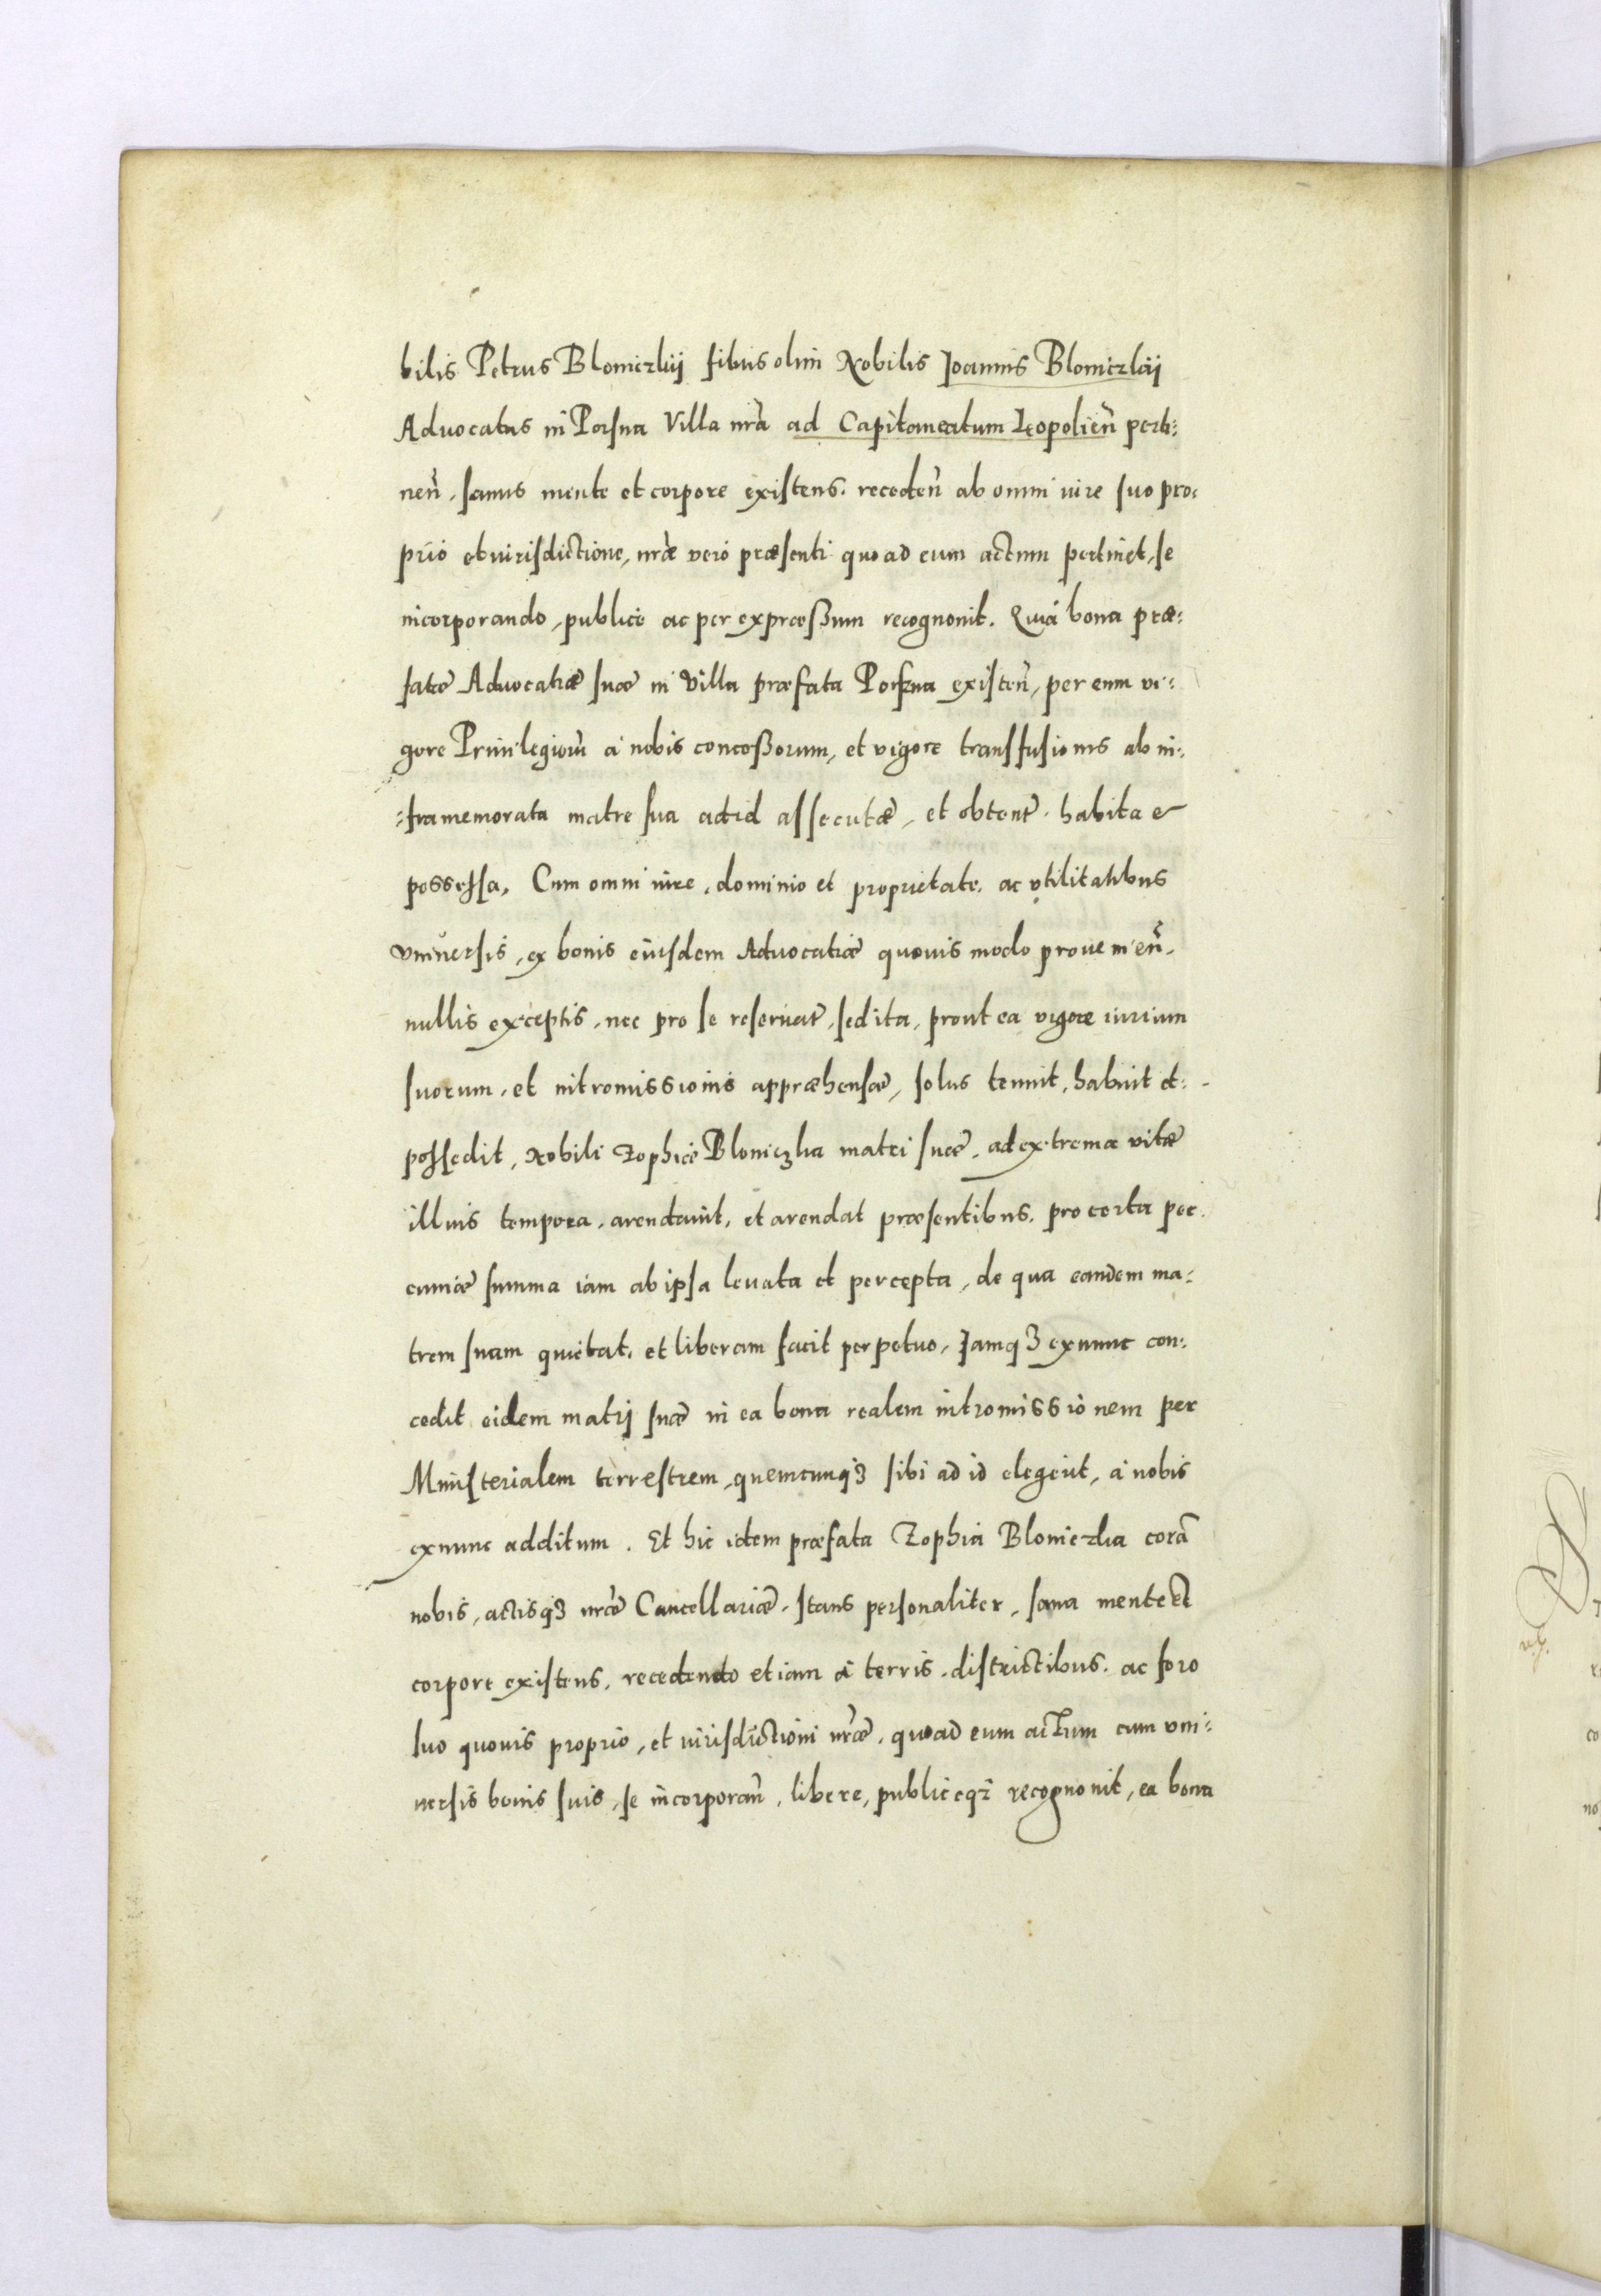 bilis Petrus Bloniczkij filius olim Nobilis Joannis Bloniczkij
Advocatus in Porsna Villa nrã ad Capitaneatum Leopolien̄ perti:
nen̄, sanus mente et corpore existens, receden̄ ab omni iure suo pro:
prio et iurisdictione, nrãe vero præsenti quo ad eum actum pertinet, se
incorporando, publicè ac per expræßum recognouit. Quiá bona præ:
fatæ Aduocatiæ suæ in Villa præfata Porszna existen̄, per eum vi:
gore Priuilegioru᷈ à nobis conceßorum, et vigore transfusionis ab in:
:framemorata matre sua ad id assecutæ, et obtent᷈, habita et
possessa, Cum omni iure, dominio et proprietate, ac vtilitatibus
vniuersis, ex bonis eiusdem Aduocatiæ quouis modo prouenien̄,
nullis exceptis, nec pro se reseruat᷈, sed ita, prout ea vigore iurium
suorum, et intromissionis appræhensæ, solus tenuit, habuit et:
possedit, Nobili Zophiæ Bloniczka matri suæ, ad extrema vitæ
illius tempora, arendauit, et arendat præsentibus, pro certa pec:
cuniæ summa iam ab ipsa leuata et percepta, de qua eandem ma:
trem suam quietat, et liberam facit perpetuo, Jamqȝ exnunc con:
cedit eidem matrj suæ in ea bona realem intromissionem per
Ministerialem terrestrem, quemcunqȝ sibi ad id elegerit, à nobis
exnunc additum. Et hic idem præfata Zophia Bloniczka corã
nobis, actisqȝ nr̃æ Cancellariæ, stans personaliter, sana mente et
corpore existens, recedendo etiam à terris, districtibus, ac foro
suo quouis proprio, et iurisdictioni nr̃æ, quo ad eum actum cum vni:
uersis bonis suis, se incorporan̄, libere, publiceqȝ recognouit, ea bona